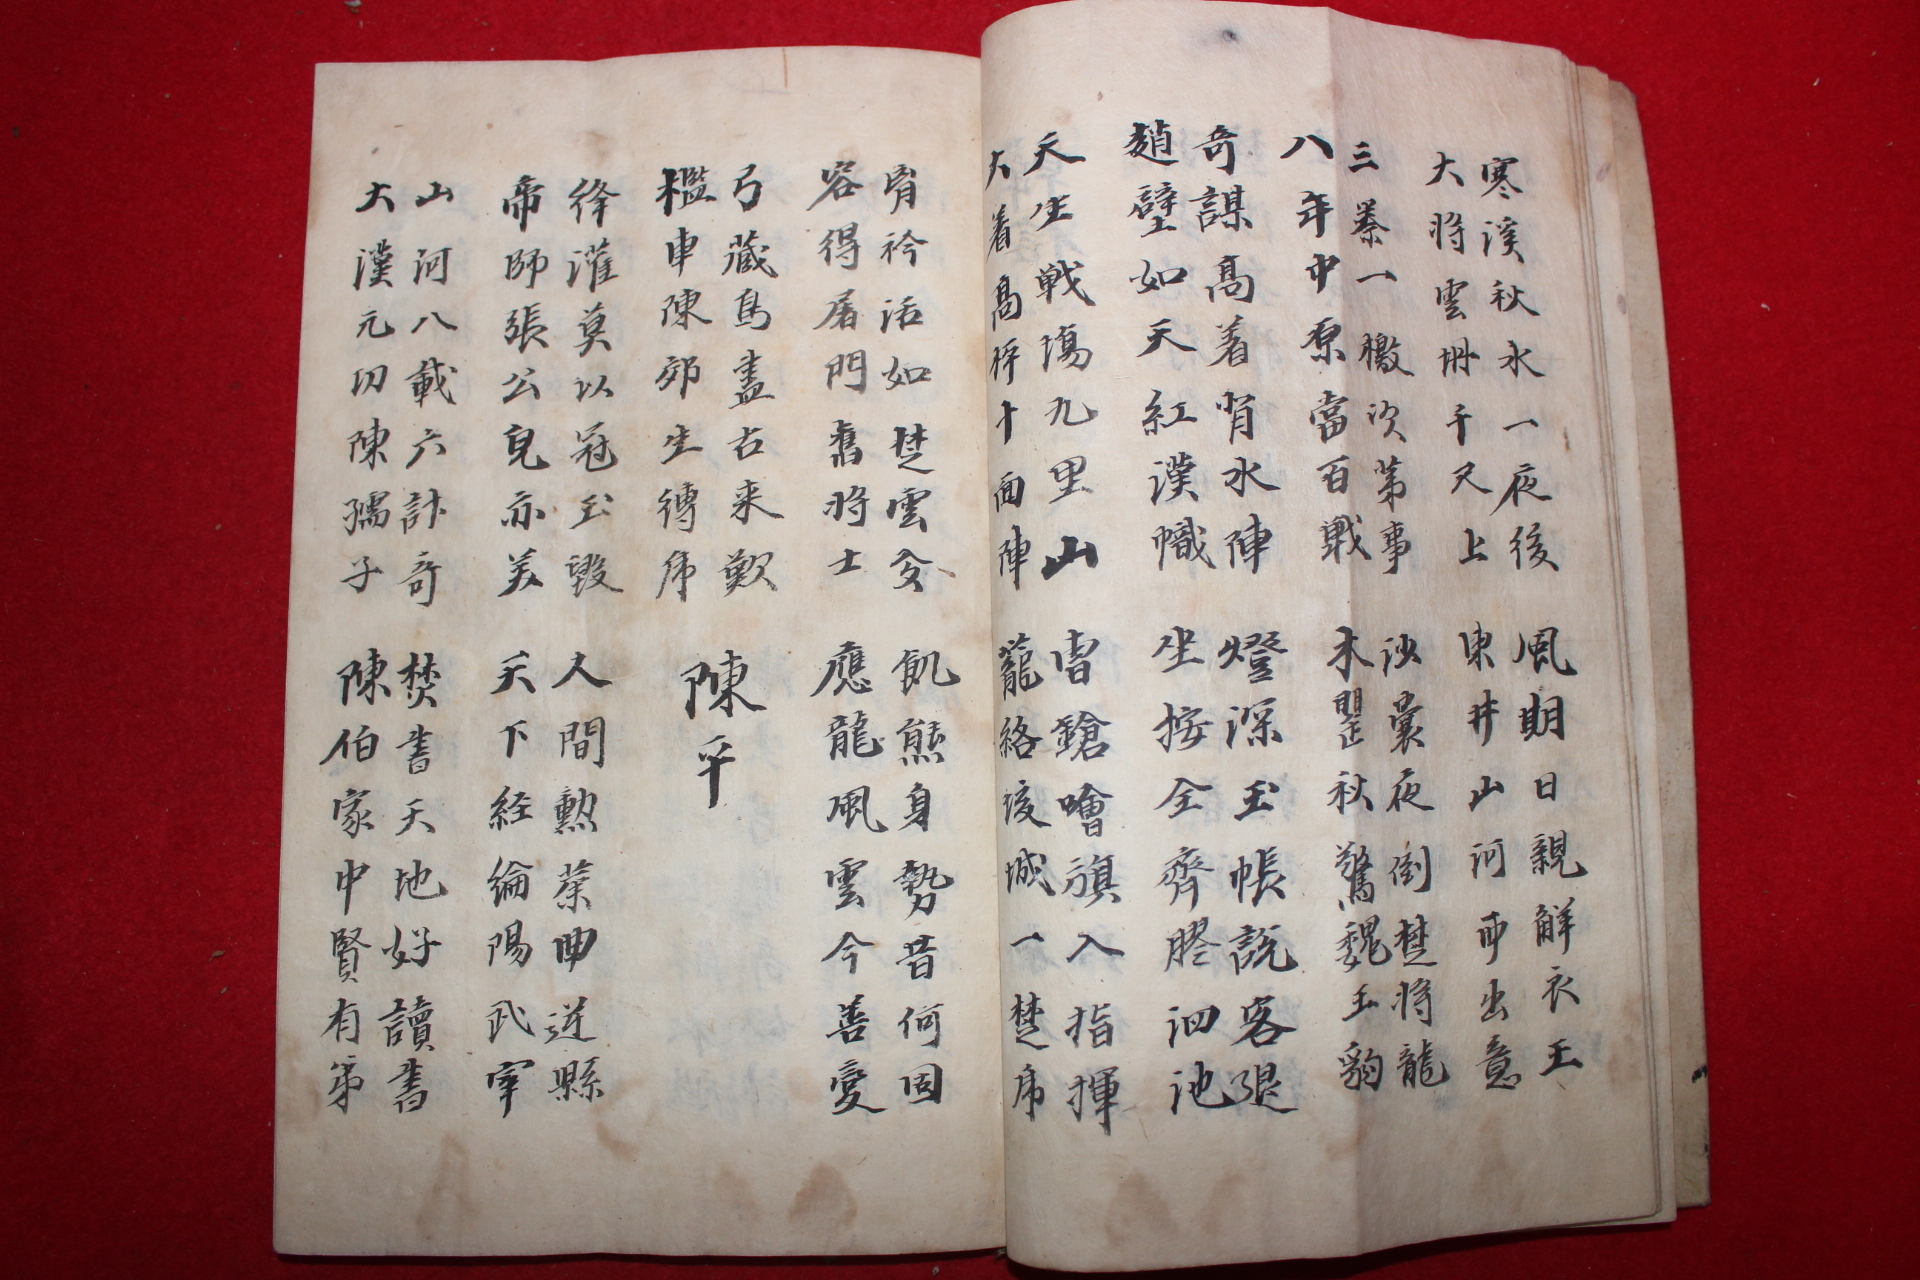 寒溪秋水一夜後 風期日親解衣王
大將雲冊千尺上 東井山河帀出意
三秦一檄次第事 沙囊夜倒楚將龍
八年中原當百戰 木罌秋驚魏王豹
奇謀高着背水陣 燈深玉帳說客退
趙壁如天紅漢幟 坐按全齊膠泗池
天生戰場九里山 雷鎗噲旗入指揮
大着高枰十面陣 籠絡垓城一楚帝
胯衿活如楚雲公 飢熊身勢昔何困
容得屠門舊將士 應龍風雲今善變
弓藏鳥盡古來歎
檻車陳郊生縛席
陳平
絳灌莫以冠玉毀 人間勲業曲逆縣
帝師張公皃亦美 天下経綸陽武宰
山河八載六計奇 焚書天地好讀書
大漢元功陳孺子 陳伯家中賢有第